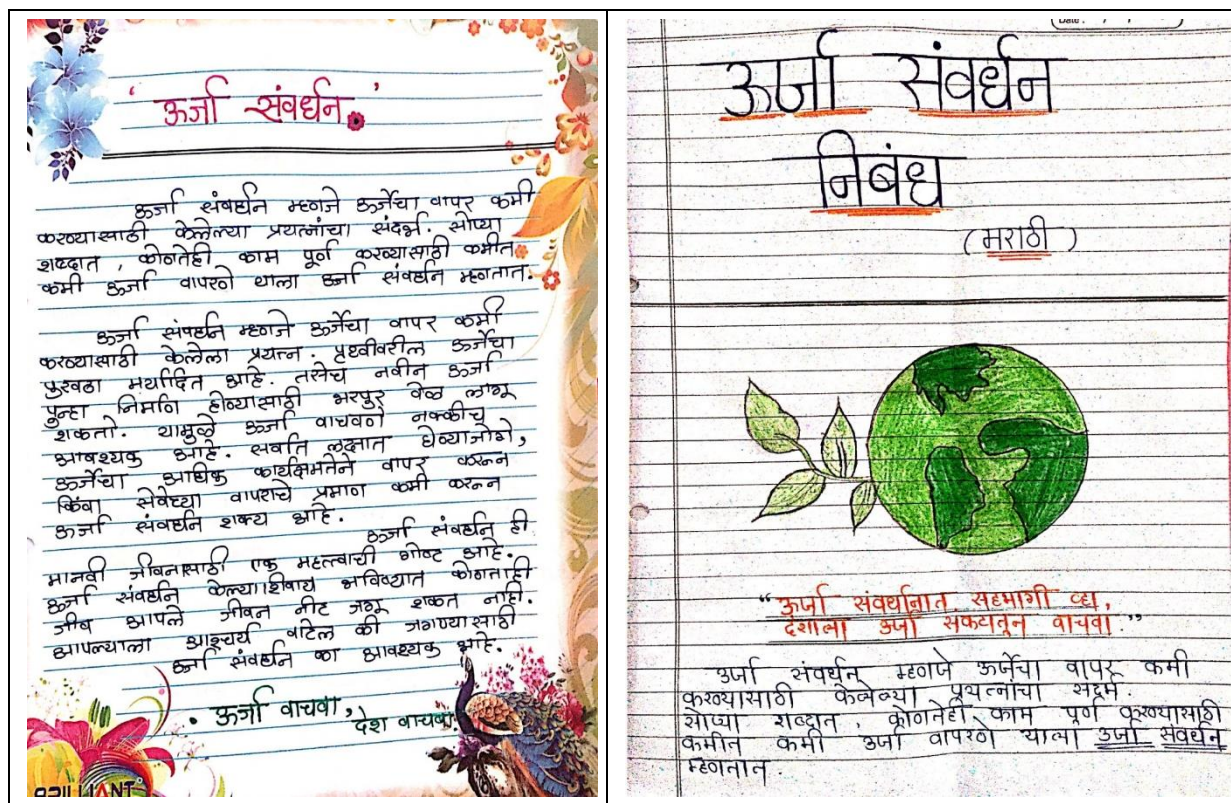 ' ऊर्जा संवर्धन. '
ऊर्जा संवर्धन म्हणजे ऊर्जेचा वापर कमी
करण्यासाठी केलेल्या प्रयत्नांचा संदर्भ. सोप्या
शब्दात, कोणतेही काम पूर्ण करण्यासाठी कमीत
कमी ऊर्जा वापरणे याला ऊर्जा संवर्धन म्हणतात.
ऊर्जा संवर्धन म्हणजे ऊर्जेचा वापर कमी
करण्यासाठी केलेला प्रयत्न. पृथ्वीवरील ऊर्जेचा
पुरवठा मर्यादित आहे. तसेच नवीन ऊर्जा
पुन्हा निर्माण होण्यासाठी भरपुर वेळ लागू
शकतो. यामुळे ऊर्जा वाचवणे नक्कीच
आवश्यक आहे. सर्वात लक्षात घेण्याजोगे,
ऊर्जेचा अधिक कार्यक्षमतेने वापर करून
किंवा सेवेच्या वापराचे प्रमाण कमी करून
ऊर्जा संवर्धन शक्य आहे.
ऊर्जा संवर्धन ही
मानवी जीवनासाठी एक महत्त्वाची गोष्ट आहे.
ऊर्जा संवर्धन केल्याशिवाय भविष्यात कोणताही
जीव आपले जीवन नीट जगू शकत नाही.
आपल्याला आश्चर्य वाटेल की जगण्यासाठी
ऊर्जा संवर्धन का आवश्यक आहे.
. ऊर्जा वाचवा,
देश वाचवा
BRILLIANT
Date: / /
ऊर्जा संवर्धन
निबंध
(मराठी)
"ऊर्जा संवर्धनात सहभागी व्हा,
देशाला ऊर्जा संकटातून वाचवा."
उर्जा संवर्धन म्हणजे ऊर्जेचा वापर कमी
करण्यासाठी केलेल्या प्रयत्नांचा संदर्भ.
सोप्या शब्दात, कोणतेही काम पूर्ण करण्यासाठी
कमीत कमी उर्जा वापरणे याला उर्जा संवर्धन
म्हणतात.